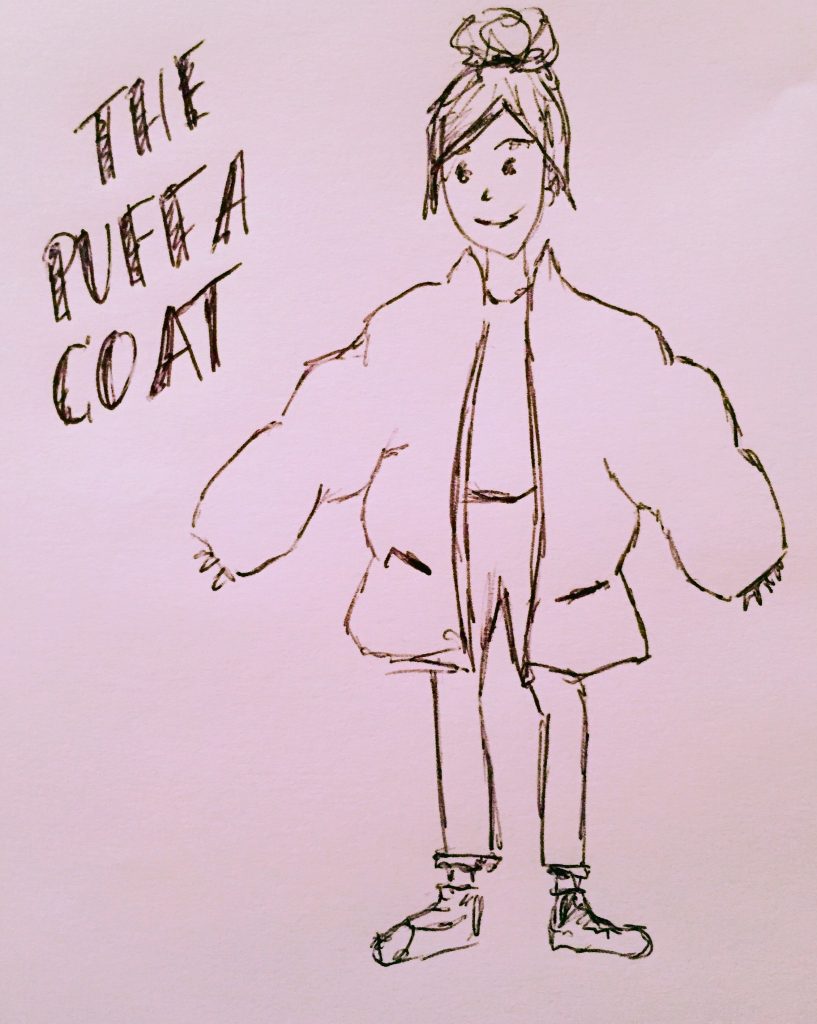 THE
PUFFA
COAT